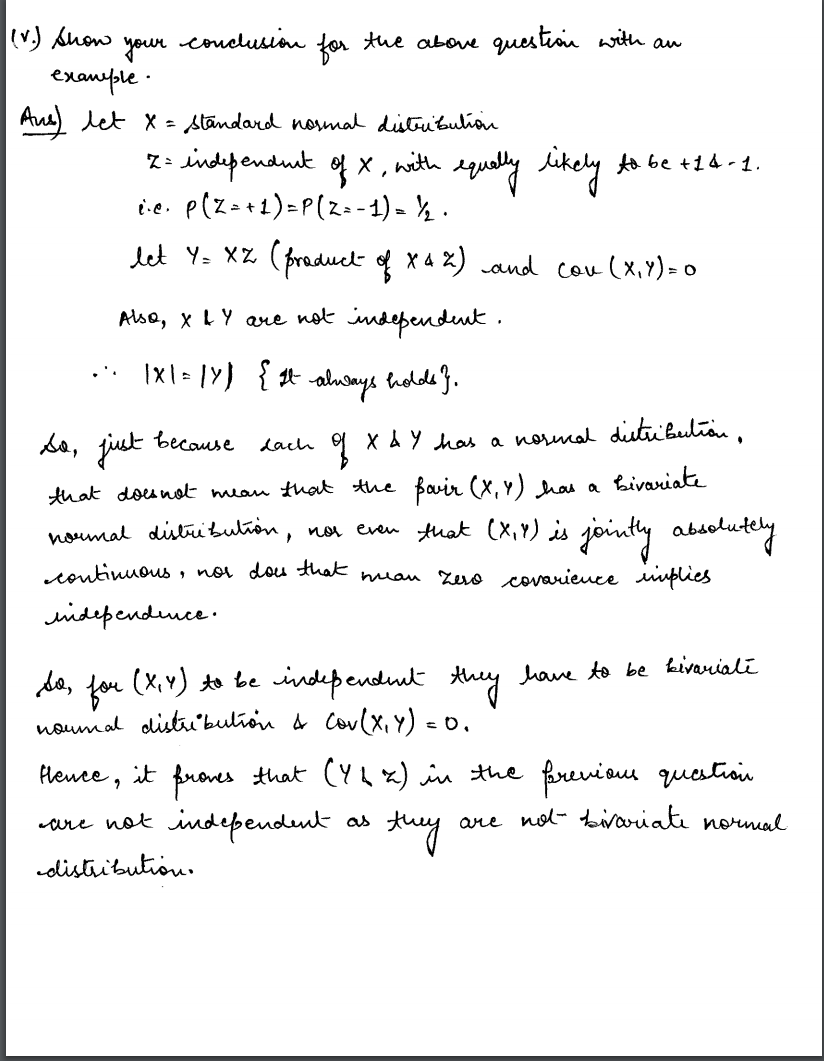 (v.) Show your conclusion for the above question with an
example.
Ans) let X = standard normal distribution
Z = independent of X, with equally likely to be +1 & -1.
i.e. P(Z=+1)=P(Z=-1)= ½.
let Y= XZ (product of X & Z) and cov (X,Y)=0
Also, X & Y are not independent.
∴ |X|=|Y| { It always holds}.
So, just because each of X & Y has a normal distribution,
that doesnot mean that the pair (X,Y) has a bivariate
normal distribution, nor even that (X,Y) is jointly absolutely
continuous, nor does that mean zero covarience implies
independence.
So, for (X,Y) to be independent they have to be bivariate
normal distribution & Cov(X,Y) = 0.
Hence, it proves that (Y & Z) in the previous question
are not independent as they are not bivariate normal
distribution.